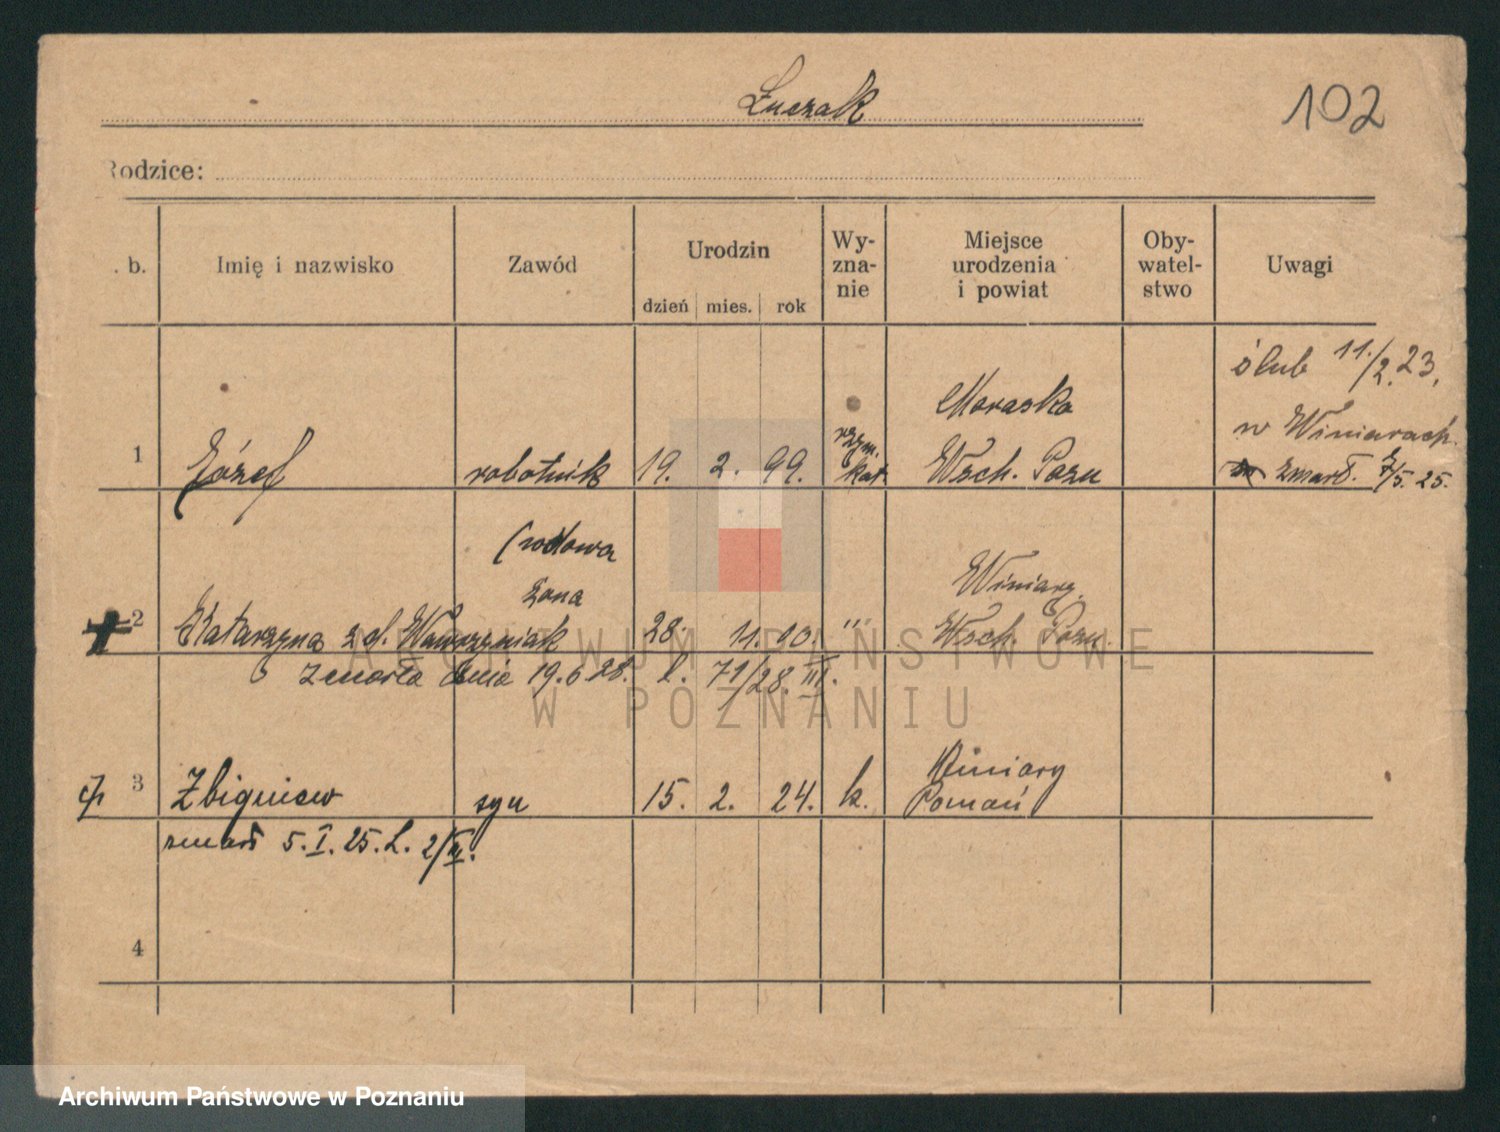 Łuczak
102
Rodzice:
. b.
Imię i nazwisko
Zawód
Urodzin
dzień mies. rok
Wy-
zna-
nie
Miejsce
urodzenia
i powiat
Oby-
watel-
stwo
Uwagi
1
Józef
robotnik
19. 2. 99.
rzym.
kat.
Moraska
Wsch. Pozn
ślub 11./2. 23.
w Winiarach.
zmarł. 7/5. 25.
2
Katarzyna z d. Wawrzyniak
(wdowa
żona
28. 11. 90.
"'
Winiary.
Wsch. Pozn.
zmarła dnia 19.6 28. l. 71/28. III.
3
Zbigniew
syn
15. 2. 24.
k.
Winiary
Poznań
zmarł 5. I. 25. L. 2/
4
ARCHIWUM PAŃSTWOWE
W POZNANIU
Archiwum Państwowe w Poznaniu